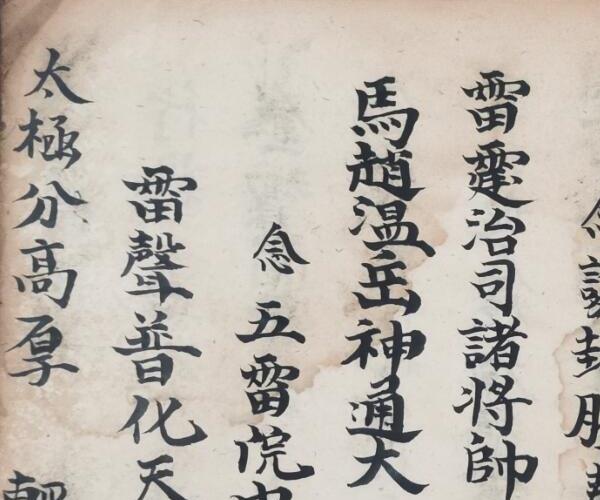 封
雷霆治司諸將帥
馬趙温岳神通大
念五雷院
雷聲普化天
太極分高厚 輕